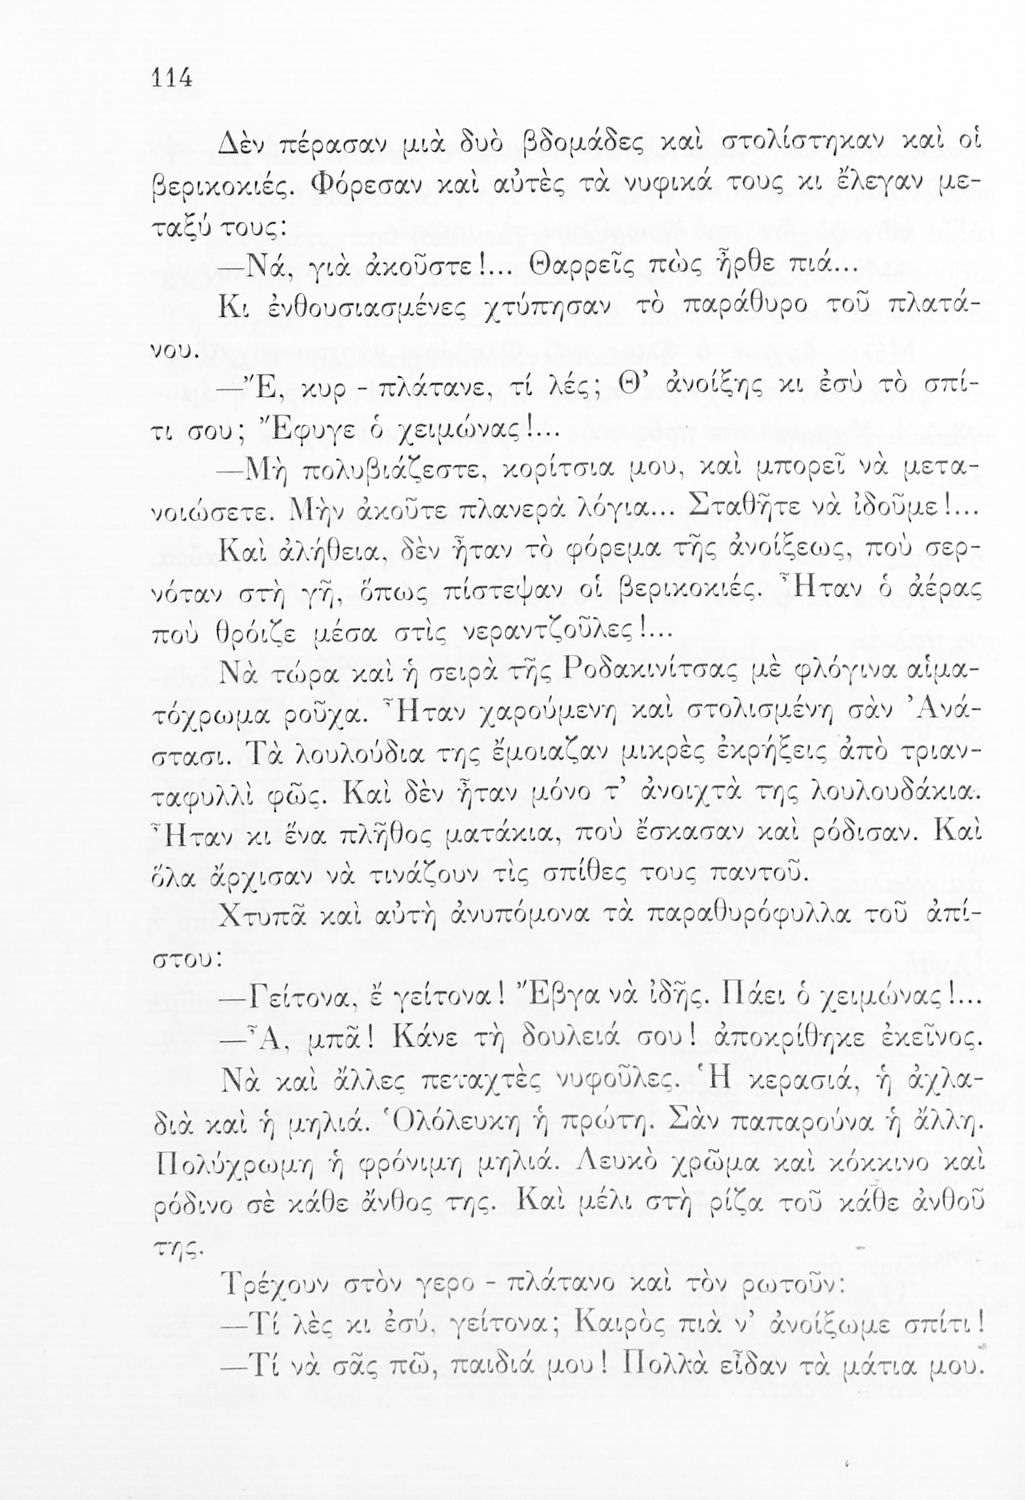 114
Δὲν πέρασαν μιὰ δυὸ βδομάδες καὶ στολίστηκαν καὶ οἱ
βερικοκιές. Φόρεσαν καὶ αὐτὲς τὰ νυφικά τους κι ἔλεγαν με-
ταξύ τους:
—Νά, γιὰ ἀκοῦστε!... Θαρρεῖς πὼς ἦρθε πιά...
Κι ἐνθουσιασμένες χτύπησαν τὸ παράθυρο τοῦ πλατά-
νου.
—Ἔ, κυρ - πλάτανε, τί λές; Θ’ ἀνοίξης κι ἐσὺ τὸ σπί-
τι σου; Ἔφυγε ὁ χειμώνας!...
—Μὴ πολυβιάζεστε, κορίτσια μου, καὶ μπορεῖ νὰ μετα-
νοιώσετε. Μὴν ἀκοῦτε πλανερὰ λόγια... Σταθῆτε νὰ ἰδοῦμε!...
Καὶ ἀλήθεια, δὲν ἦταν τὸ φόρεμα τῆς ἀνοίξεως, ποὺ σερ-
νόταν στὴ γῆ, ὅπως πίστεψαν οἱ βερικοκιές. Ἦταν ὁ ἀέρας
ποὺ θρόιζε μέσα στὶς νεραντζοῦλες!...
Νὰ τώρα καὶ ἡ σειρὰ τῆς Ροδακινίτσας μὲ φλόγινα αἱμα-
τόχρωμα ροῦχα. Ἦταν χαρούμενη καὶ στολισμένη σὰν Ἀνά-
στασι. Τὰ λουλούδια της ἔμοιαζαν μικρὲς ἐκρήξεις ἀπὸ τριαν-
ταφυλλὶ φῶς. Καὶ δὲν ἦταν μόνο τ’ ἀνοιχτὰ της λουλουδάκια.
Ἦταν κι ἕνα πλῆθος ματάκια, ποὺ ἔσκασαν καὶ ρόδισαν. Καὶ
ὅλα ἄρχισαν νὰ τινάζουν τὶς σπίθες τους παντοῦ.
Χτυπᾶ καὶ αὐτὴ ἀνυπόμονα τὰ παραθυρόφυλλα τοῦ ἀπί-
στου:
—Γείτονα, ἔ γείτονα! Ἔβγα νὰ ἰδῆς. Πάει ὁ χειμώνας!...
—Ἆ, μπᾶ! Κάνε τὴ δουλειά σου! ἀποκρίθηκε ἐκεῖνος.
Νὰ καὶ ἄλλες πεταχτὲς νυφοῦλες. Ἡ κερασιά, ἡ ἀχλα-
διὰ καὶ ἡ μηλιά. Ὁλόλευκη ἡ πρώτη. Σὰν παπαρούνα ἡ ἄλλη.
Πολύχρωμη ἡ φρόνιμη μηλιά. Λευκὸ χρῶμα καὶ κόκκινο καὶ
ρόδινο σὲ κάθε ἄνθος της. Καὶ μέλι στὴ ρίζα τοῦ κάθε ἀνθοῦ
της.
Τρέχουν στὸν γερο - πλάτανο καὶ τὸν ρωτοῦν:
—Τί λὲς κι ἐσύ, γείτονα; Καιρὸς πιὰ ν’ ἀνοίξωμε σπίτι!
—Τί νὰ σᾶς πῶ, παιδιά μου! Πολλὰ εἶδαν τὰ μάτια μου.